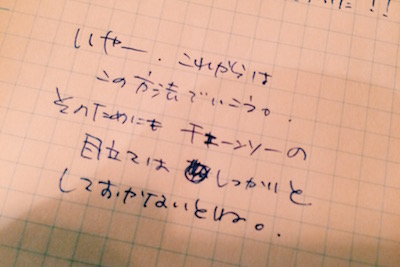 !!
いやー、これからは
この方法でいこう。
そのためにも チェーンソーの
目立ては しっかりと
しておかないとね。